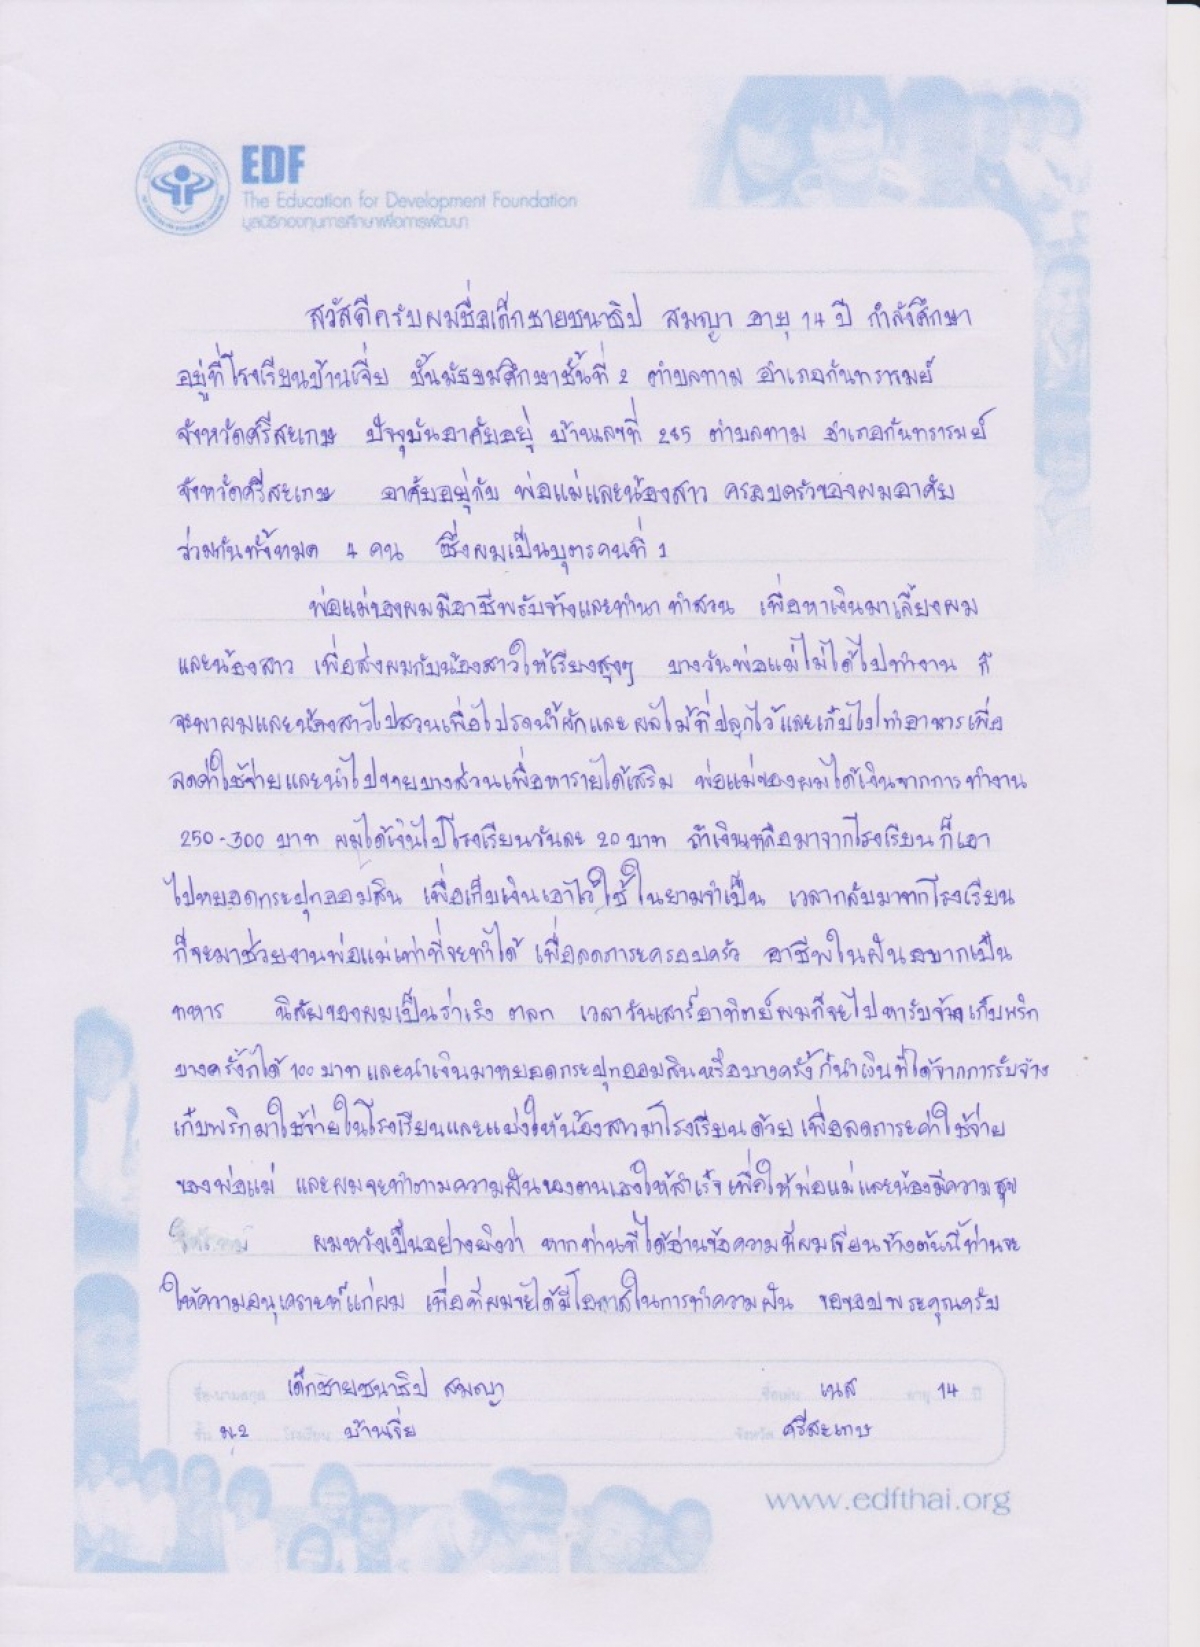 EDF
The Education for Development Foundation
มูลนิธิกองทุนการศึกษาเพื่อการพัฒนา
สวัสดีครับผมชื่อเด็กชายชนาธิป สมญา อายุ 14 ปี กำลังศึกษา
อยู่ที่โรงเรียนบ้านเจี่ย ชั้นมัธยมศึกษาชั้นที่ 2 ตำบลทาม อำเภอกันทรารมย์
จังหวัดศรีสะเกษ ปัจจุบันอาศัยอยู่ บ้านเลขที่ 285 ตำบลทาม อำเภอกันทรารมย์
จังหวัดศรีสะเกษ อาศัยอยู่กับ พ่อแม่และน้องสาว ครอบครัวของผมอาศัย
ร่วมกันทั้งหมด 4 คน ซึ่งผมเป็นบุตรคนที่ 1
พ่อแม่ของผมมีอาชีพรับจ้างและทำนา ทำสวน เพื่อหาเงินมาเลี้ยงผม
และน้องสาว เพื่อส่งผมกับน้องสาวให้เรียงสูงๆ บางวันพ่อแม่ไม่ได้ไปทำงาน ก็
จะพาผมและน้องสาวไปสวนเพื่อไปรดน้ำผักและผลไม้ที่ปลูกไว้และเก็บไปทำอาหารเพื่อ
ลดค่าใช้จ่ายและนำไปขายบางส่วนเพื่อหารายได้เสริม พ่อแม่ของผมได้เงินจากการทำงาน
250-300 บาท ผมได้เงินไปโรงเรียนวันละ 20 บาท ถ้าเงินเหลือมาจากโรงเรียนก็เอา
ไปหยอดกระปุกออมสิน เพื่อเก็บเงินเอาไว้ใช้ในยามจำเป็น เวลากลับมาจากโรงเรียน
ก็จะมาช่วยงานพ่อแม่เท่าที่จะทำได้ เพื่อลดภาระครอบครัว อาชีพในฝันอยากเป็น
ทหาร นิสัยของผมเป็นร่าเริง ตลก เวลาวันเสาร์อาทิตย์ผมก็จะไปหารับจ้างเก็บพริก
บางครั้งก็ได้ 100 บาท และนำเงินมาหยอดกระปุกออมสินหรือบางครั้งก็นำเงินที่ได้จากการรับจ้าง
เก็บพริกมาใช้จ่ายในโรงเรียนและแบ่งให้น้องสาวมาโรงเรียนด้วย เพื่อลดภาระค่าใช้จ่าย
ของพ่อแม่ และผมจะทำตามความฝันของตนเองให้สำเร็จ เพื่อให้พ่อแม่และน้องมีความสุข
ผมหวังเป็นอย่างยิ่งว่า หากท่านที่ได้อ่านข้อความที่ผมเขียนข้างต้นนี้ท่านจะ
ให้ความอนุเคราะห์แก่ผม เพื่อที่ผมจะได้มีโอกาสในการทำความฝัน ขอขอบพระคุณครับ
ชื่อ-นามสกุล เด็กชายชนาธิป สมญา ชื่อเล่น เนส อายุ 14 ปี
ชั้น ม.2 โรงเรียน บ้านเจี่ย จังหวัด ศรีสะเกษ
www.edfthai.org